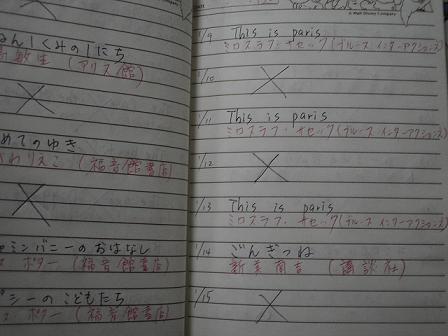 ねんしくみの1にち
(アリス館)
めてのゆき
わりえこ (福音館書店)
ャミンバニーのおはなし
ポター (福音館書店)
プシーのこどもたち
ポター (福音館書店)
© Walt Disney Company
1/9 This is paris
ミロスラフ・サセック(ブルース・インターアクションズ)
1/10 ×
1/11 This is paris
ミロスラフ・サセック(ブルース・インターアクションズ)
1/12 ×
1/13 This is paris
ミロスラフ・サセック(ブルース・インターアクションズ)
1/14 ごんぎつね
新美南吉 (講談社)
1/15 ×